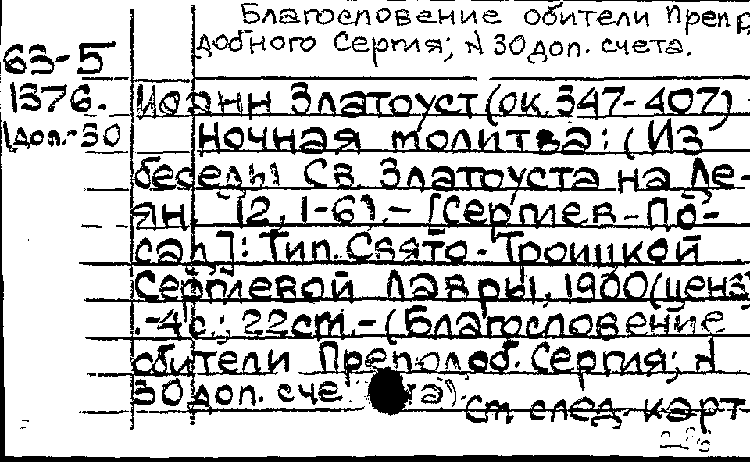 Благословение обители Преп
добного Сергия; № 30 доп. счета.
63-5
1376.
доп.-30
Иоанн Златоуст (ок. 347-407)
Ночная молитва: (Из
беседы Св. Златоуста на Де-
ян. (2, 1-6).- [Сергиев-По-
сад]: Тип. Свято-Троицкой
Сергиевой Лавры, 1900 (цена)
.-4 с.; 22см.-(Благословение
обители Преподоб. Сергия; №
30 доп. сче та).
см след. карт